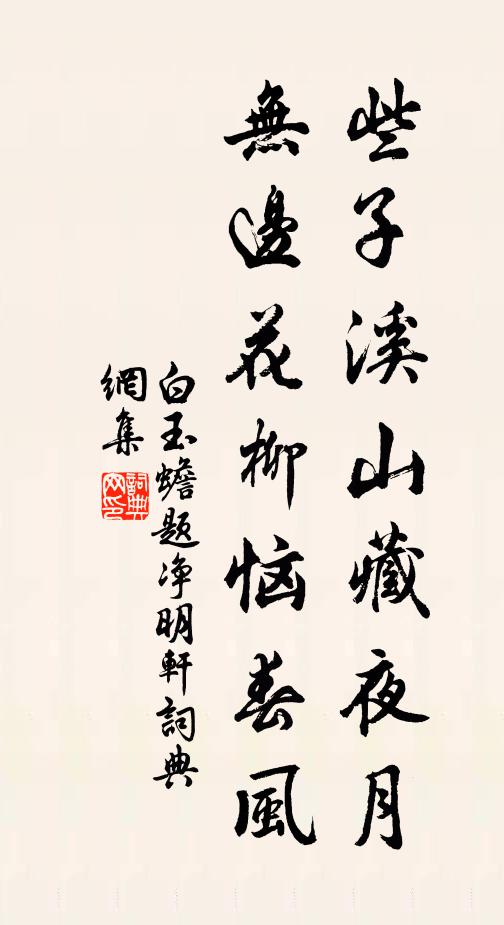 些子溪山藏夜月
無邊花柳恼春風
白玉蟾题净明軒詞典
網集
詞典
网印